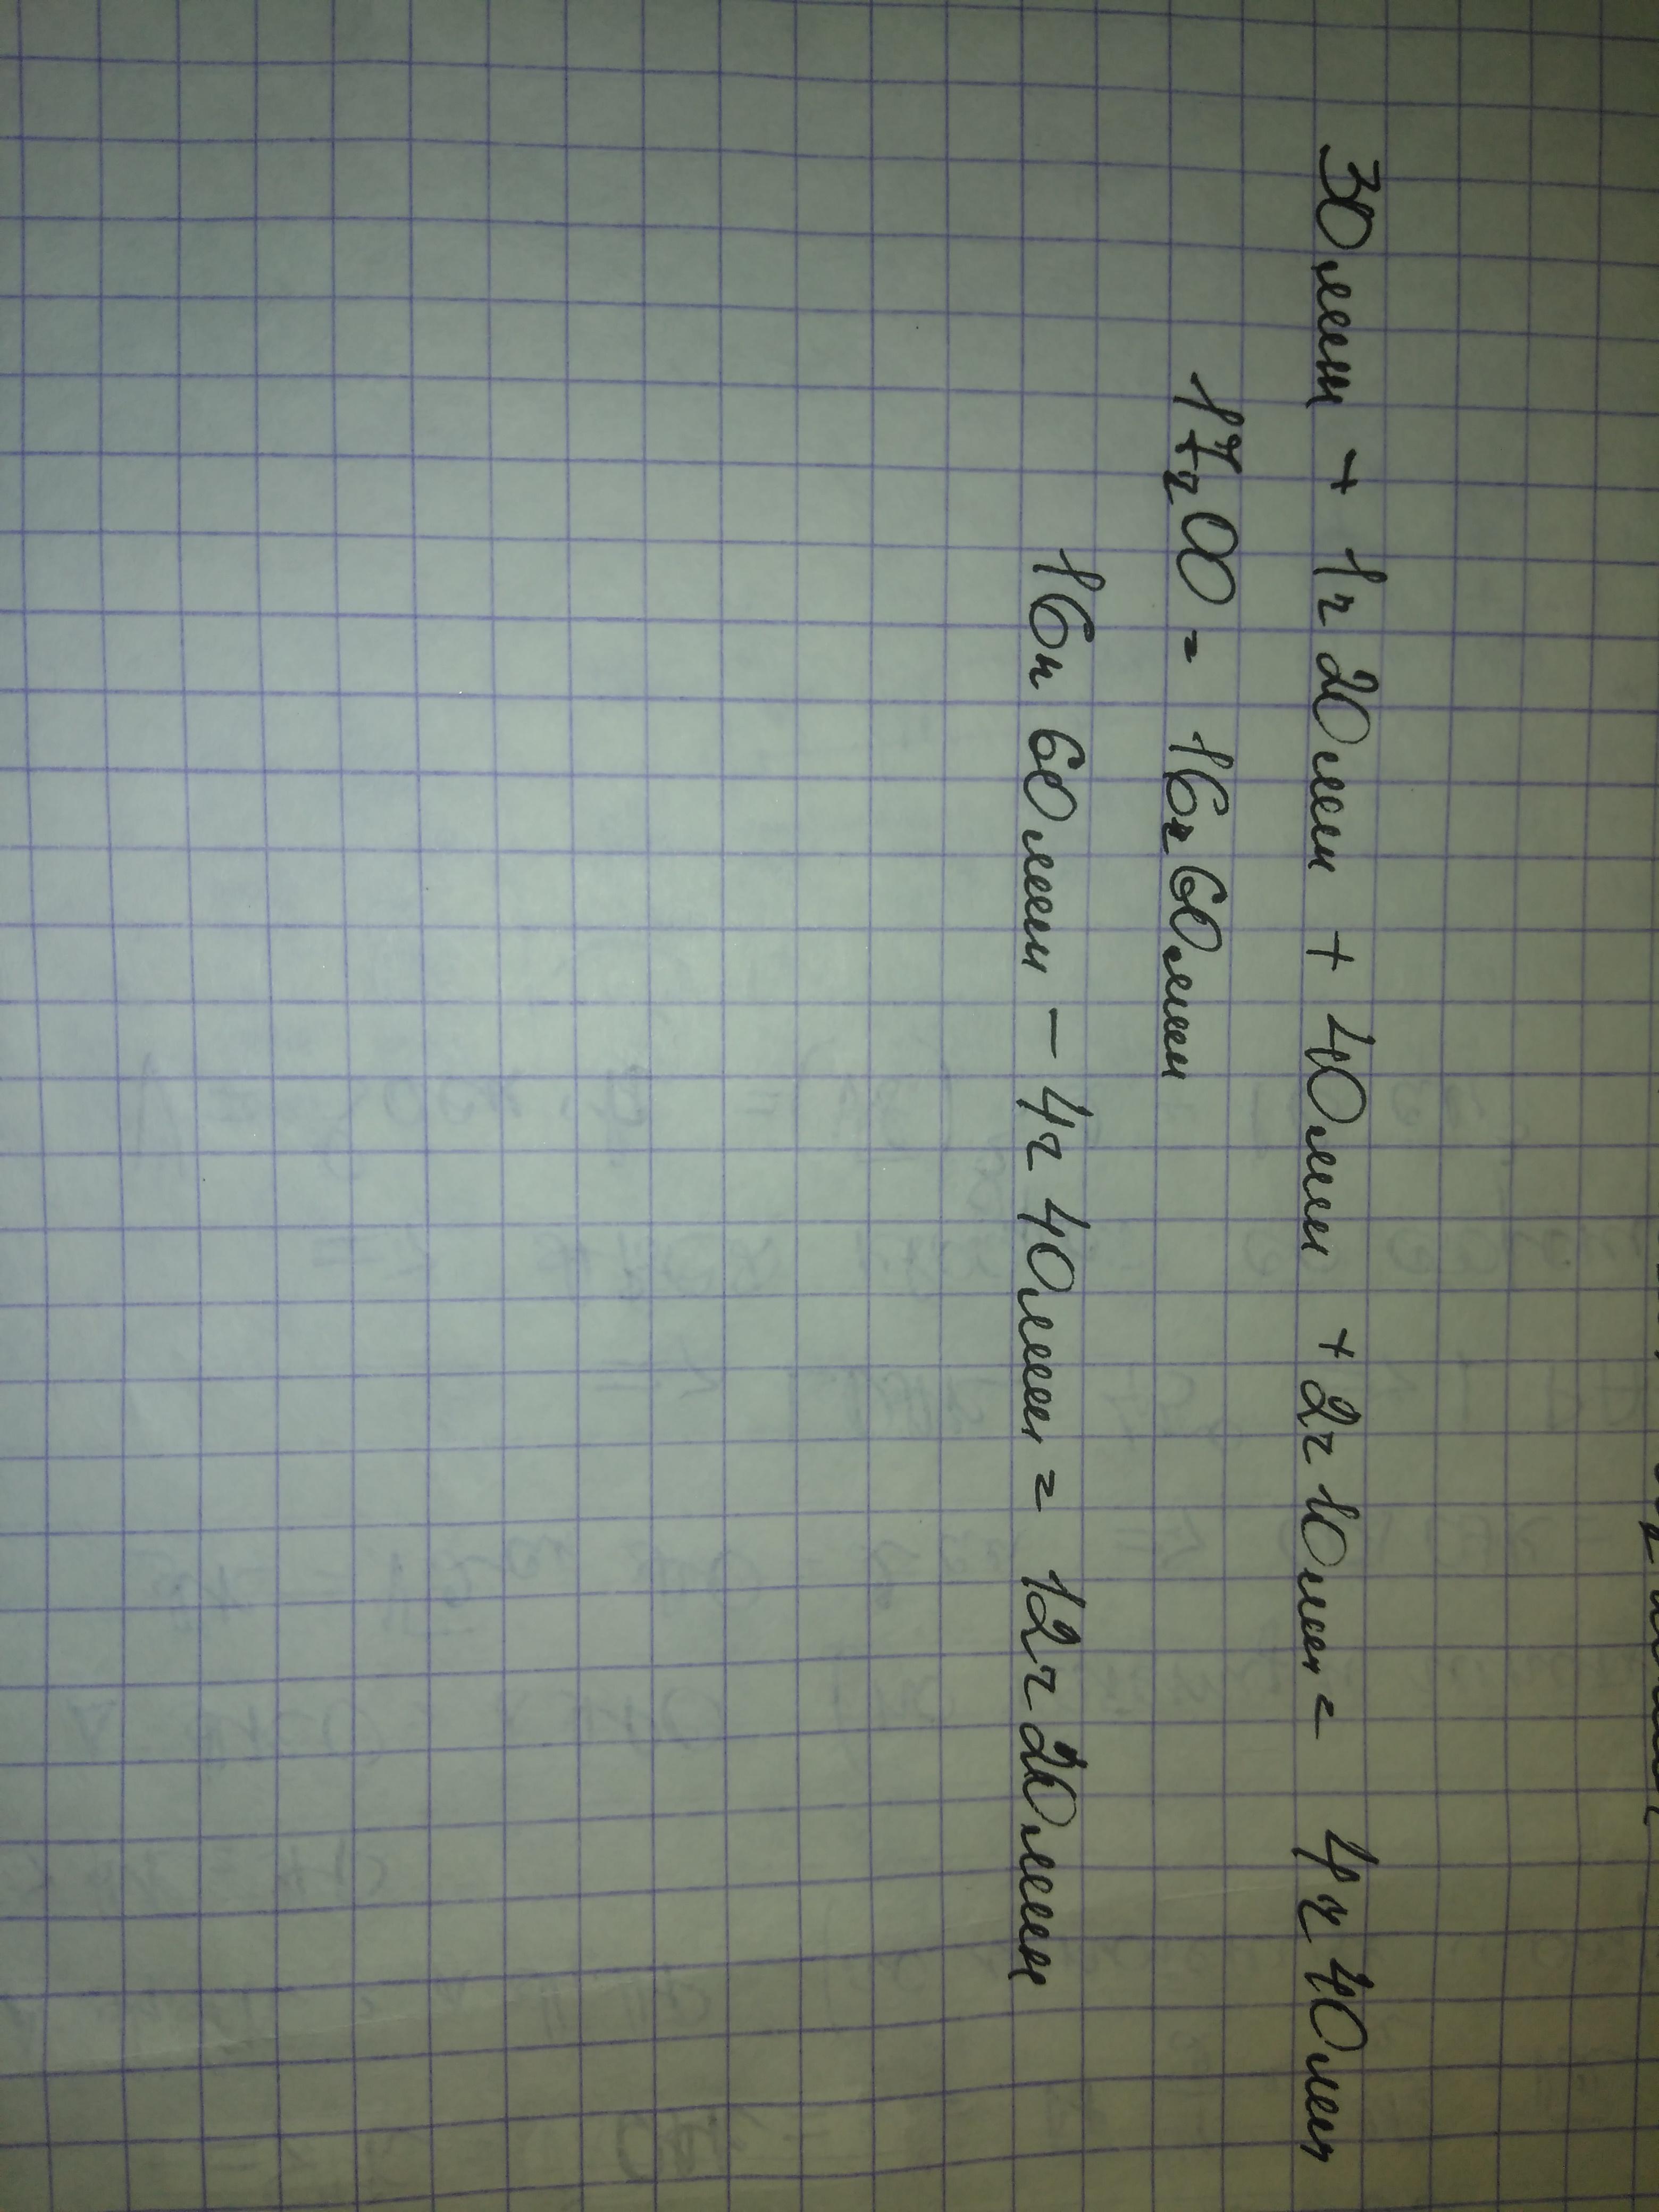 30мин + 1ч 20мин + 40мин + 2ч 10мин = 4ч 40мин
17ч00 = 16ч60мин
16ч 60мин - 4ч 40мин = 12ч 20мин